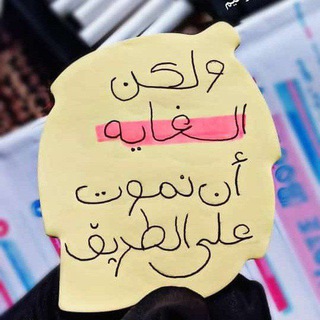 ولكن
الغايه
أن نموت
على الطريق